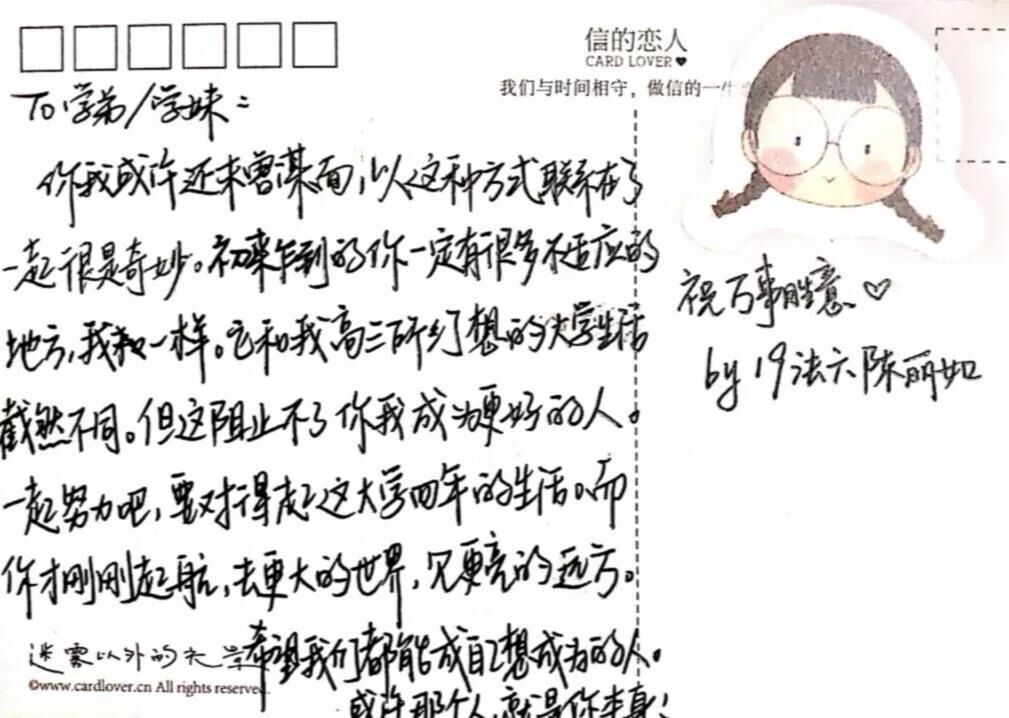 信的恋人
CARD LOVER
我们与时间相守，做信的一生
To 学弟/学妹：
你我或许还未曾谋面，以这种方式联系在了
一起很是奇妙。初来乍到的你一定有很多不适应的
地方，我也一样。它和我高三所幻想的大学生活
截然不同。但这阻止不了你我成为更好的人。
一起努力吧，要对得起这大学四年的生活。而
你才刚刚起航，去更大的世界，见更亮的远方。
希望我们都能成自己想成为的人。
或许那个人，就是你本身！
祝万事胜意 ♡
by 19法六 陈丽如
迷雾以外的
©www.cardlover.cn All rights reserved.